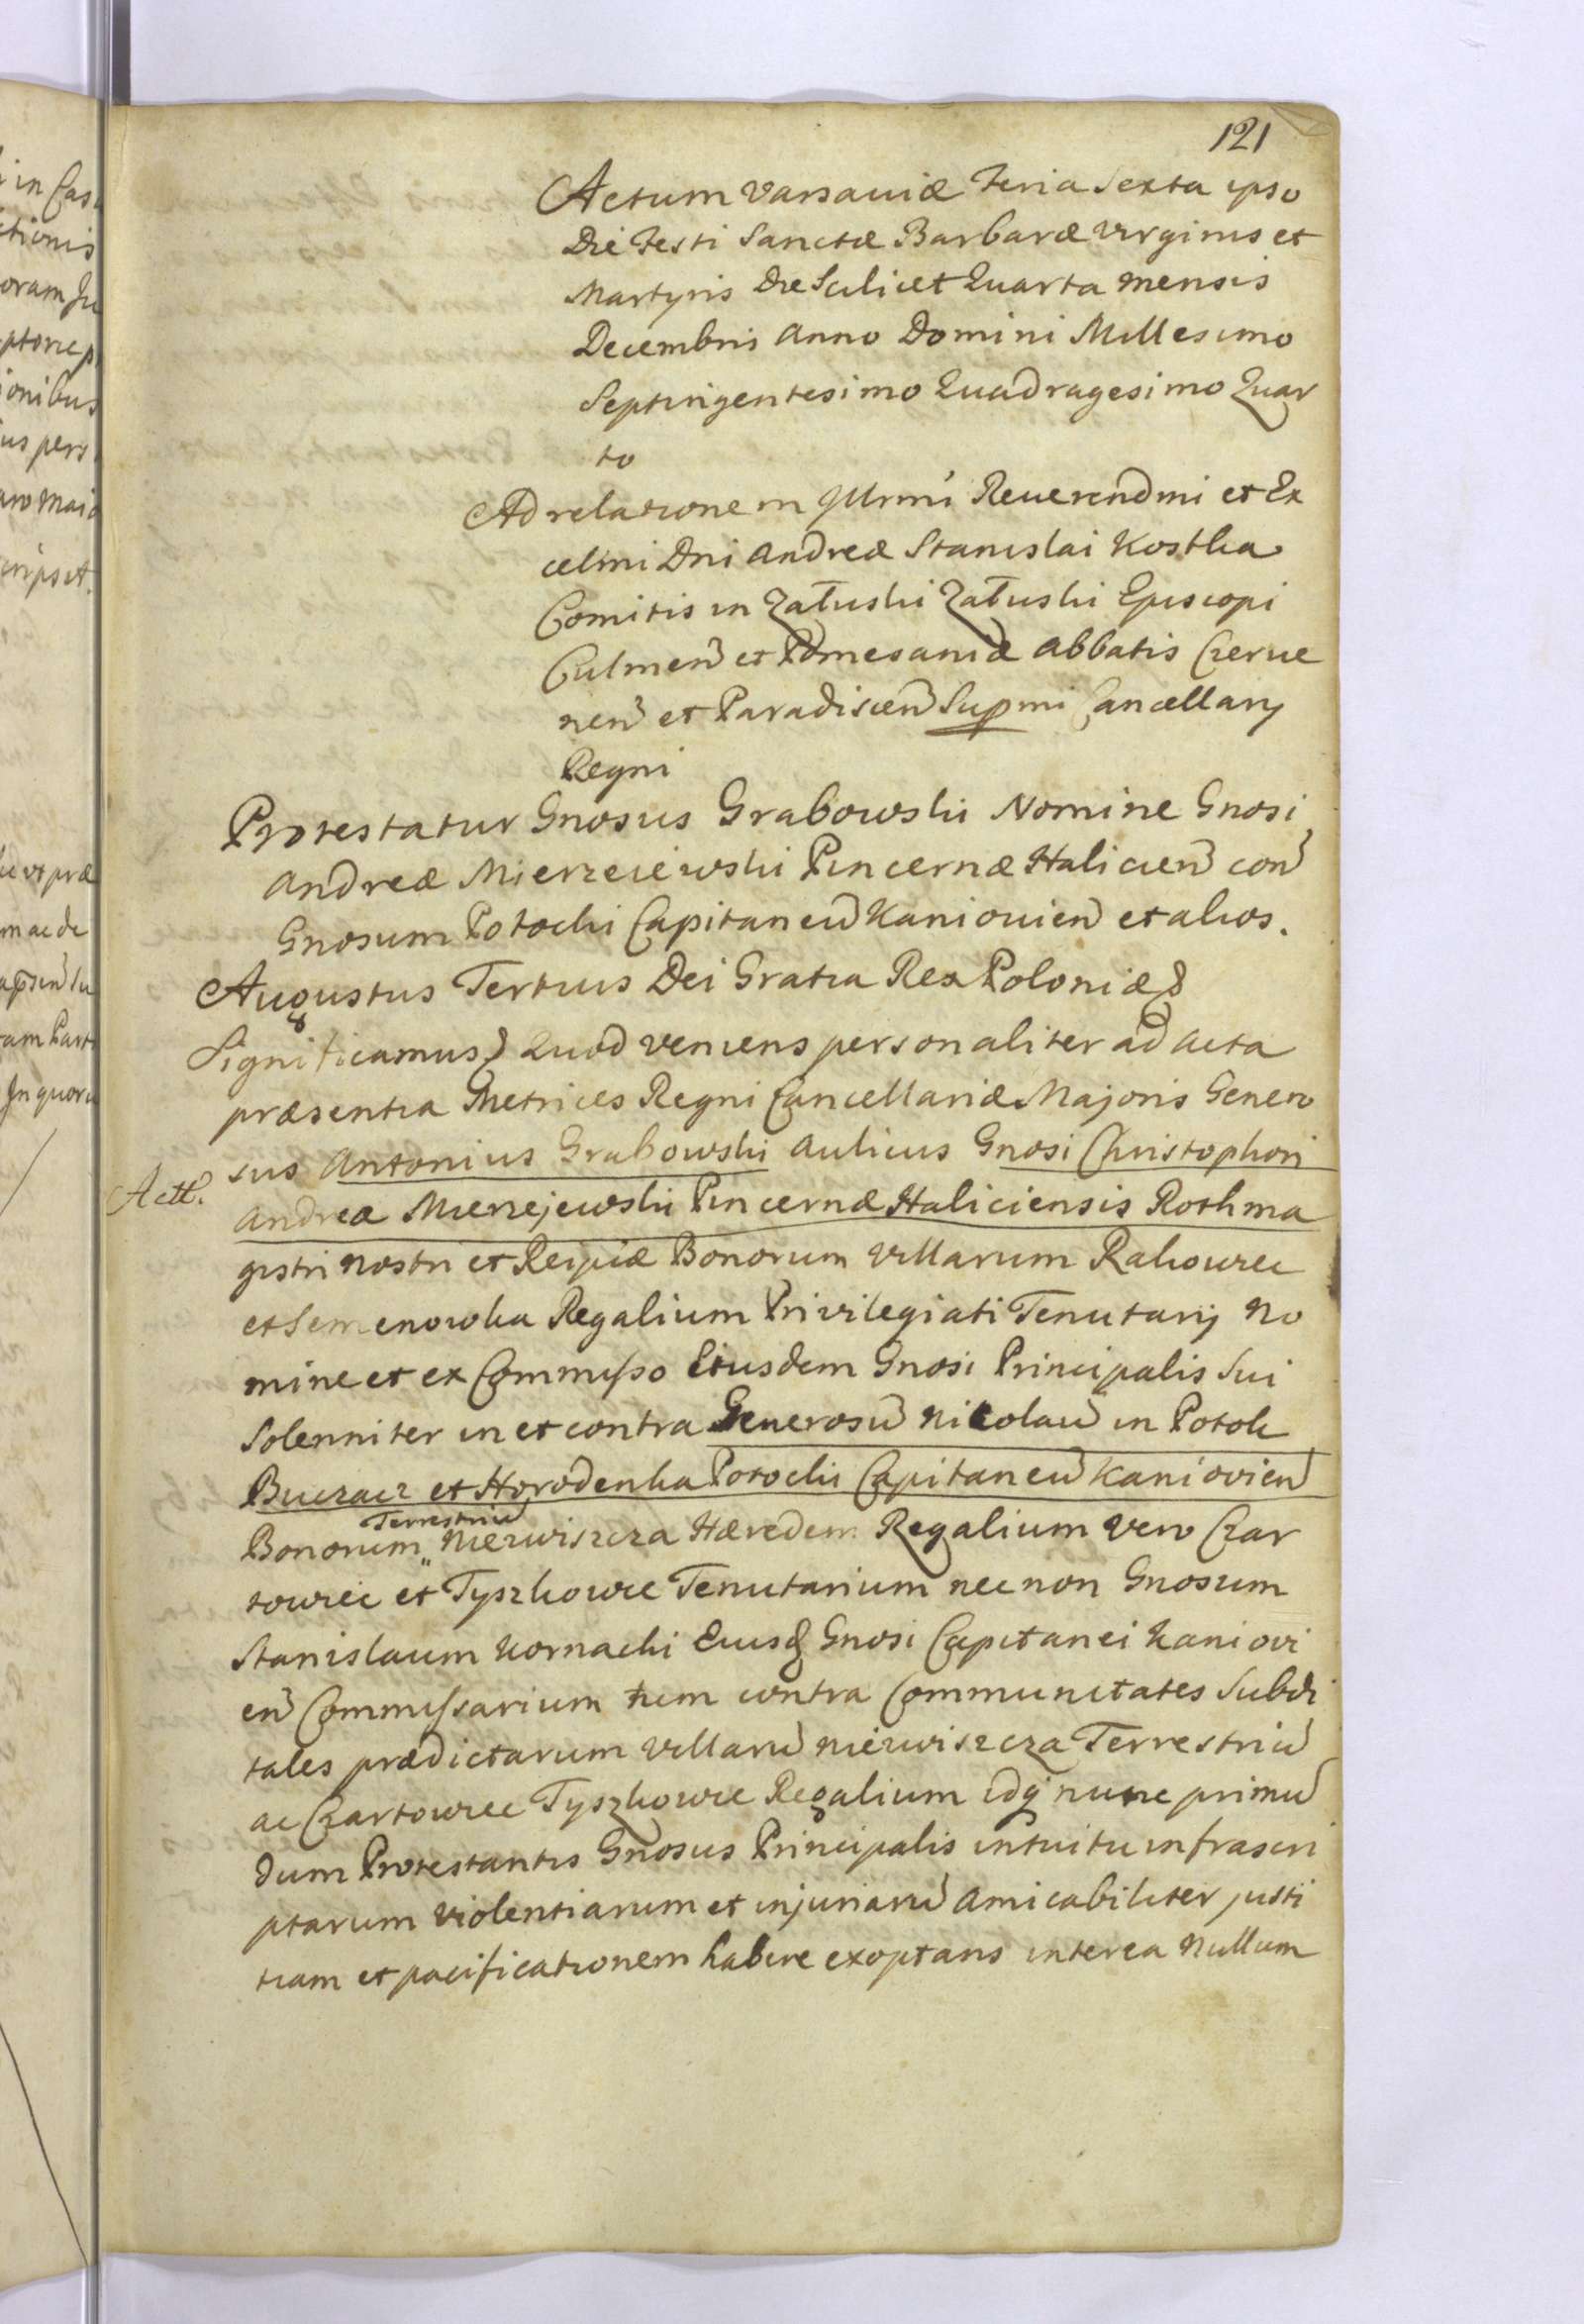 121
Actum Varsaviæ Feria Sexta ipso
Die Festi Sanctæ Barbaræ Virginis et
Martyris Die Scilicet Quarta Mensis
Decembris Anno Domini Millesimo
Septingentesimo Quadragesimo Quar
to
Ad relationem Illrmi Reverendmi et Ex
celmi Dni Andreæ Stanislai Kostka
Comitis in Załuski Załuski Episcopi
Culmen̄ et Pomesaniæ Abbatis Czerve
nen̄ et Paradiscen̄ Supmi Cancellarij
Regni
Protestatur Gnosus Grabowski Nomine Gnosi
Andreæ Mierzeiewski Pincernæ Halicien̄ con̄
Gnosum Potocki Capitaneu̅ Kaniovien̄ et alios.
Augustus Tertius Dei Gratia Rex Poloniæ &
Significamus & Quod veniens personaliter ad Acta
præsentia Metrices Regni Cancellariæ Majoris Genero
sus Antonius Grabowski Aulicus Gnosi Christophori
Actt.
Andreæ Mierzejewski Pincernæ Haliciensis Rothma
gistri Nostri et Reipcæ Bonorum Villarum Rakowiec
et Semenowka Regalium Privilegiati Tenutarij No
mine et ex Commisso Eiusdem Gnosi Principalis Sui
Solenniter in et contra Generosu̅ Nicolau̅ in Potok
Buczacz et Horodenka Potocki Capitaneu̅ Kaniovien̄
Terrestriu̅
Bonorum Niezwiszcza Hæredem Regalium vero Czar
towiec et Tyszkowce Tenutarium nec non Gnosum
Stanislaum Kornacki Eiusd Gnosi Capitanei Kaniovi
en̄ Commissarium tum contra Communitates Subdi
tales prædictarum Villaru̅ Niezwiszcza Terrestriu̅
ac Czartowiec Tyszkowce Regalium idq nunc primu̅
dum Protestantis Gnosus Principalis intuitu infrascri
ptarum violentiarum et injuriaru̅ amicabiliter justi
tiam et pacificationem habere exoptans interea Nullum